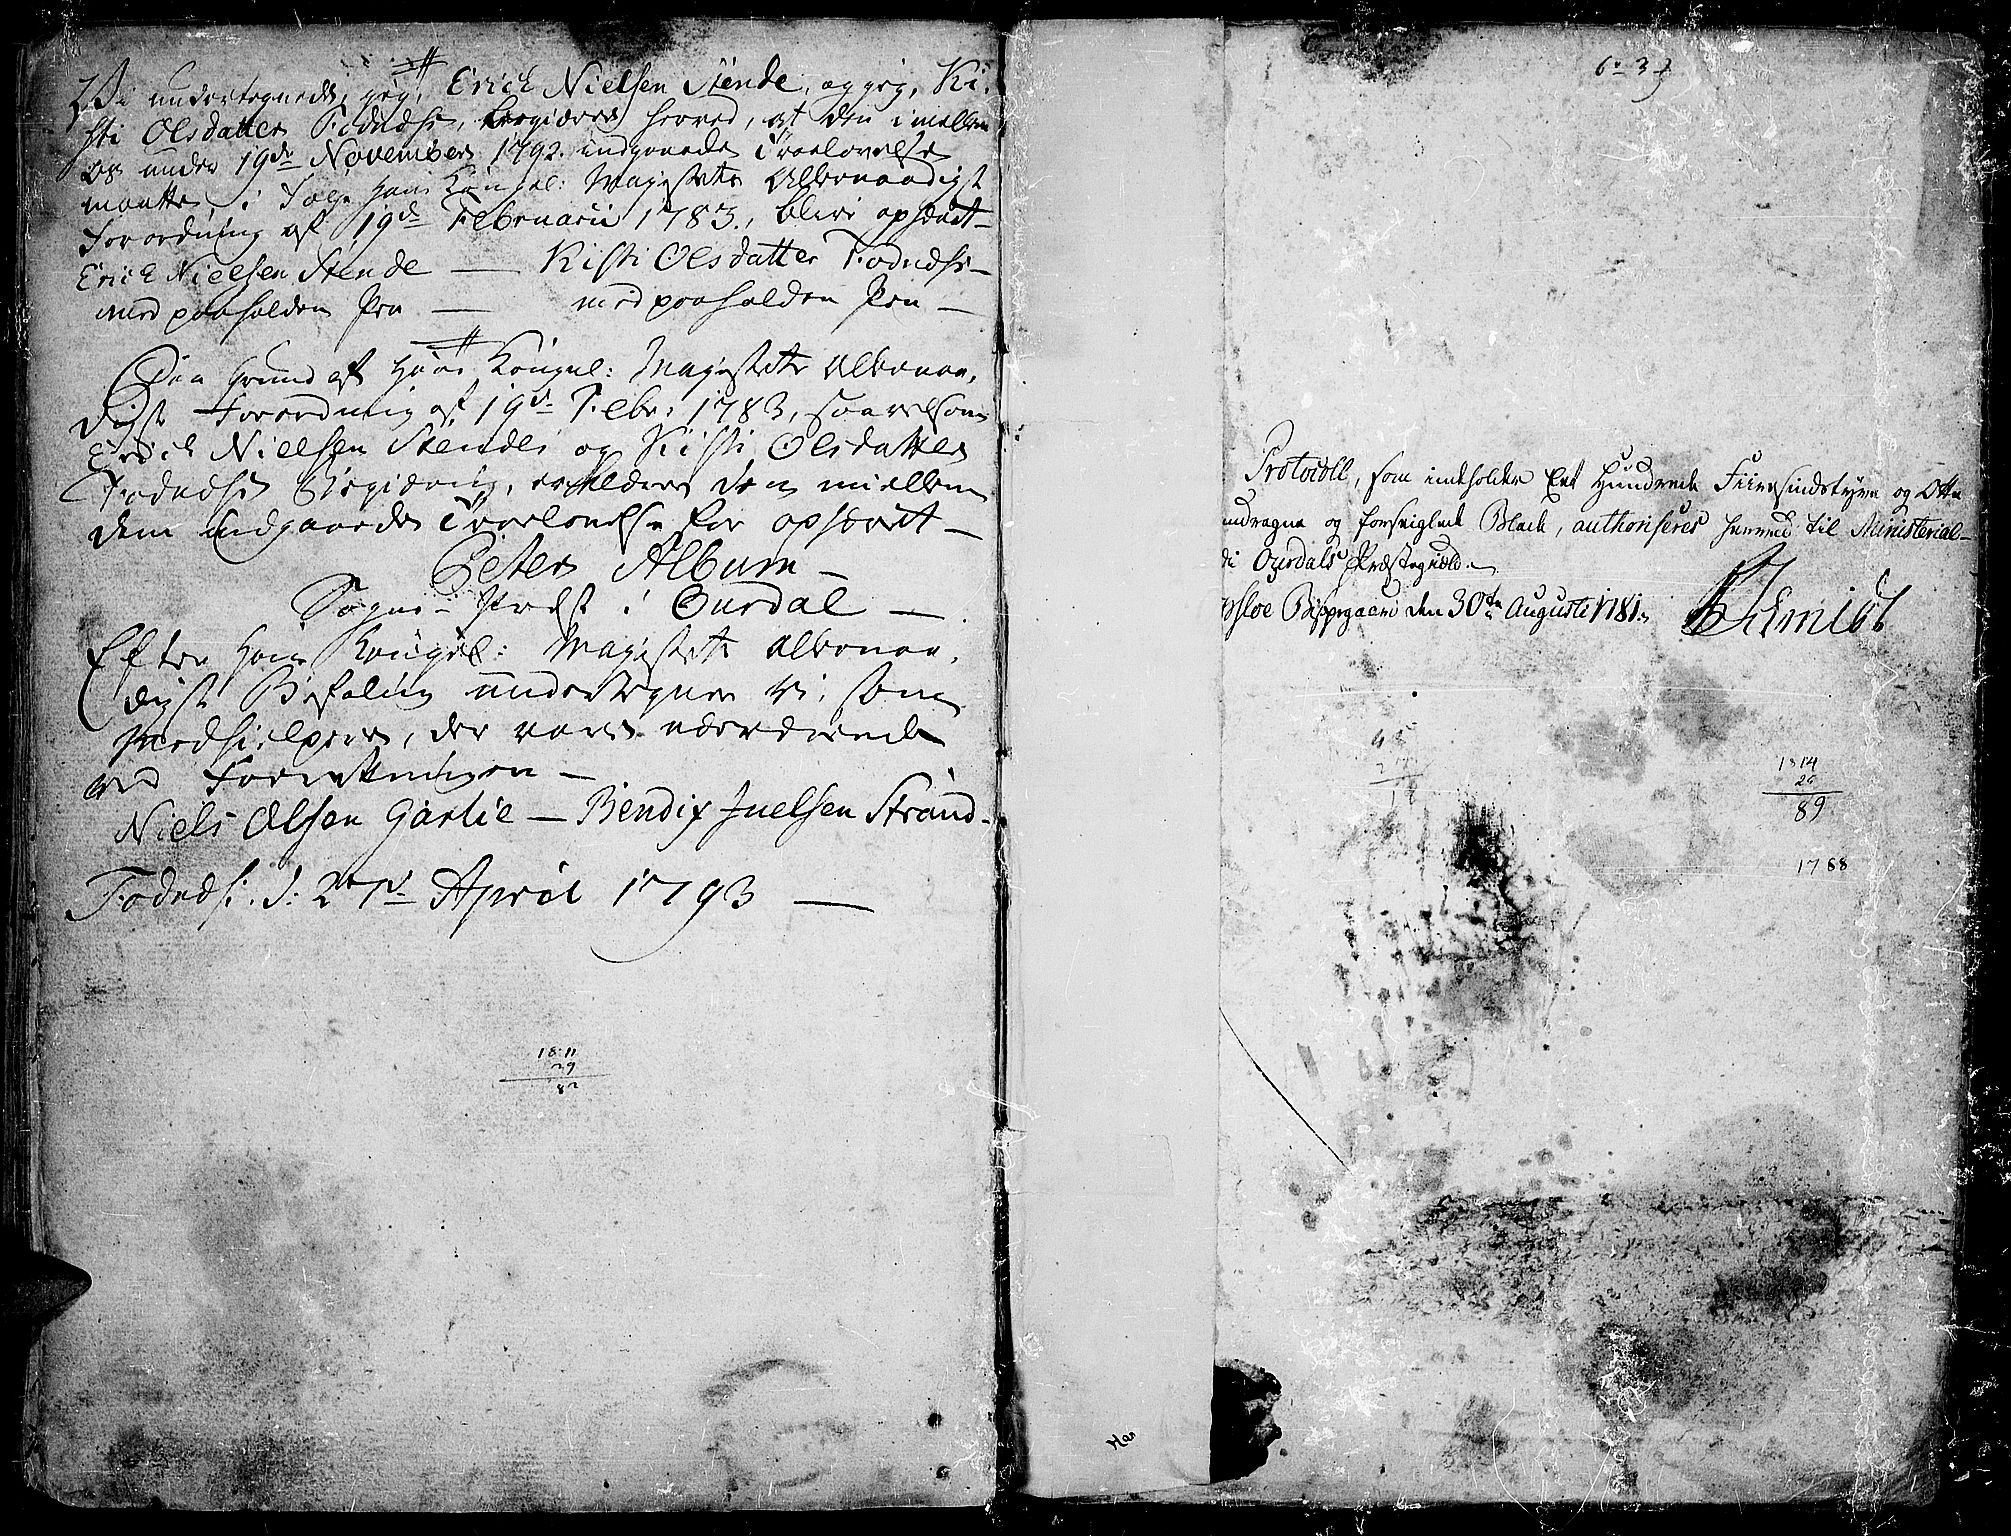 Vi undertegnede, jeg, Erich Nielsen Stende, og jeg, Ki-
sti Olsdatter Fodnæss, begiærer herved, at den imellem
os under 19de November 1792 indgaaede Troelovelse
maatte, i Følge Hans Kongel: Majestets Allernaadigst
Forordning af 19de Februarii 1783., blive ophævet —
Erich Nielsen Stende — Kisti Olsdatter Fodnæss —
med paaholden Pen — med paaholden Pen —
Paa Grund af Hans Kongel: Majestets Allernaa-
digste Forordning af 19de Febr: 1783, saavelsom
Erich Nielsen Stendes og Kisti Olsdatters
Fodnæss Begiæring, erklæres den imellem
dem indgaaede Troelovelse for ophævet —
Peter Album —
Sogne-Præst i Ourdal —
Efter Hans Kongel: Majestets allernaa-
digst Befaling undertegner vi, som
Medhielpere, der vare nærværende
ved Forretningen —
Niels Olsen Garlie — Bendix Juelsen Strand.
Fodnæss. d: 27de April 1793 —
18.11
29
82
6 - 3
Protocoll, som indeholder Eet Hundrede Fiiresindstyve og Otte
ndragne og forseiglede Blade, authoriseres herved til Ministerial-
i Ourdals Præstegield.
sloe Bispegaard den 30te Augusti 1781.
Schmidt
1814
25
89
1788
Han